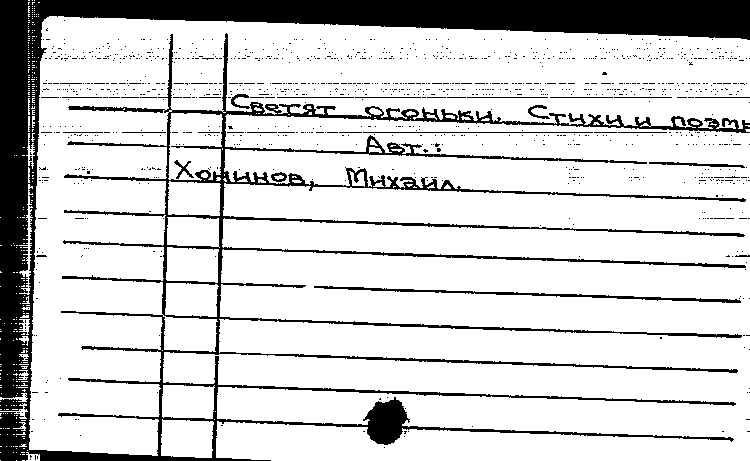 Светят огоньки. Стихи и поэм
Авт.:
Хонинов, Михаил.